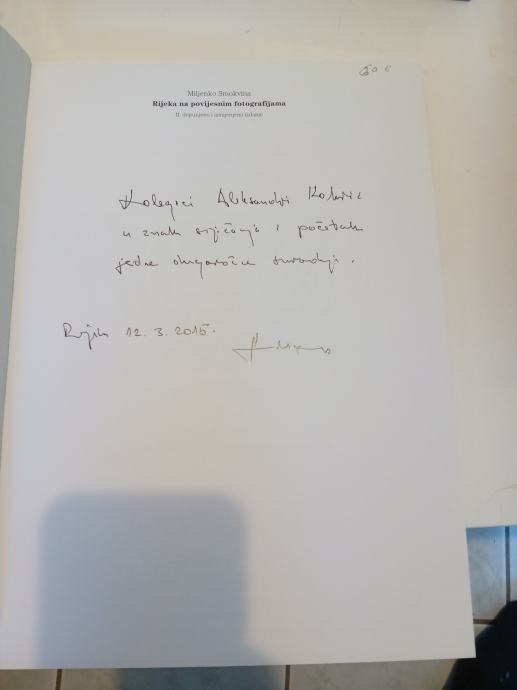 50 €
Miljenko Smokvina
Rijeka na povijesnim fotografijama
II. dopunjeno i izmijenjeno izdanje
Kolegici Aleksandri
u znak sjećanja i početak
jedne suradnje.
Rijeka 12. 3. 2015.